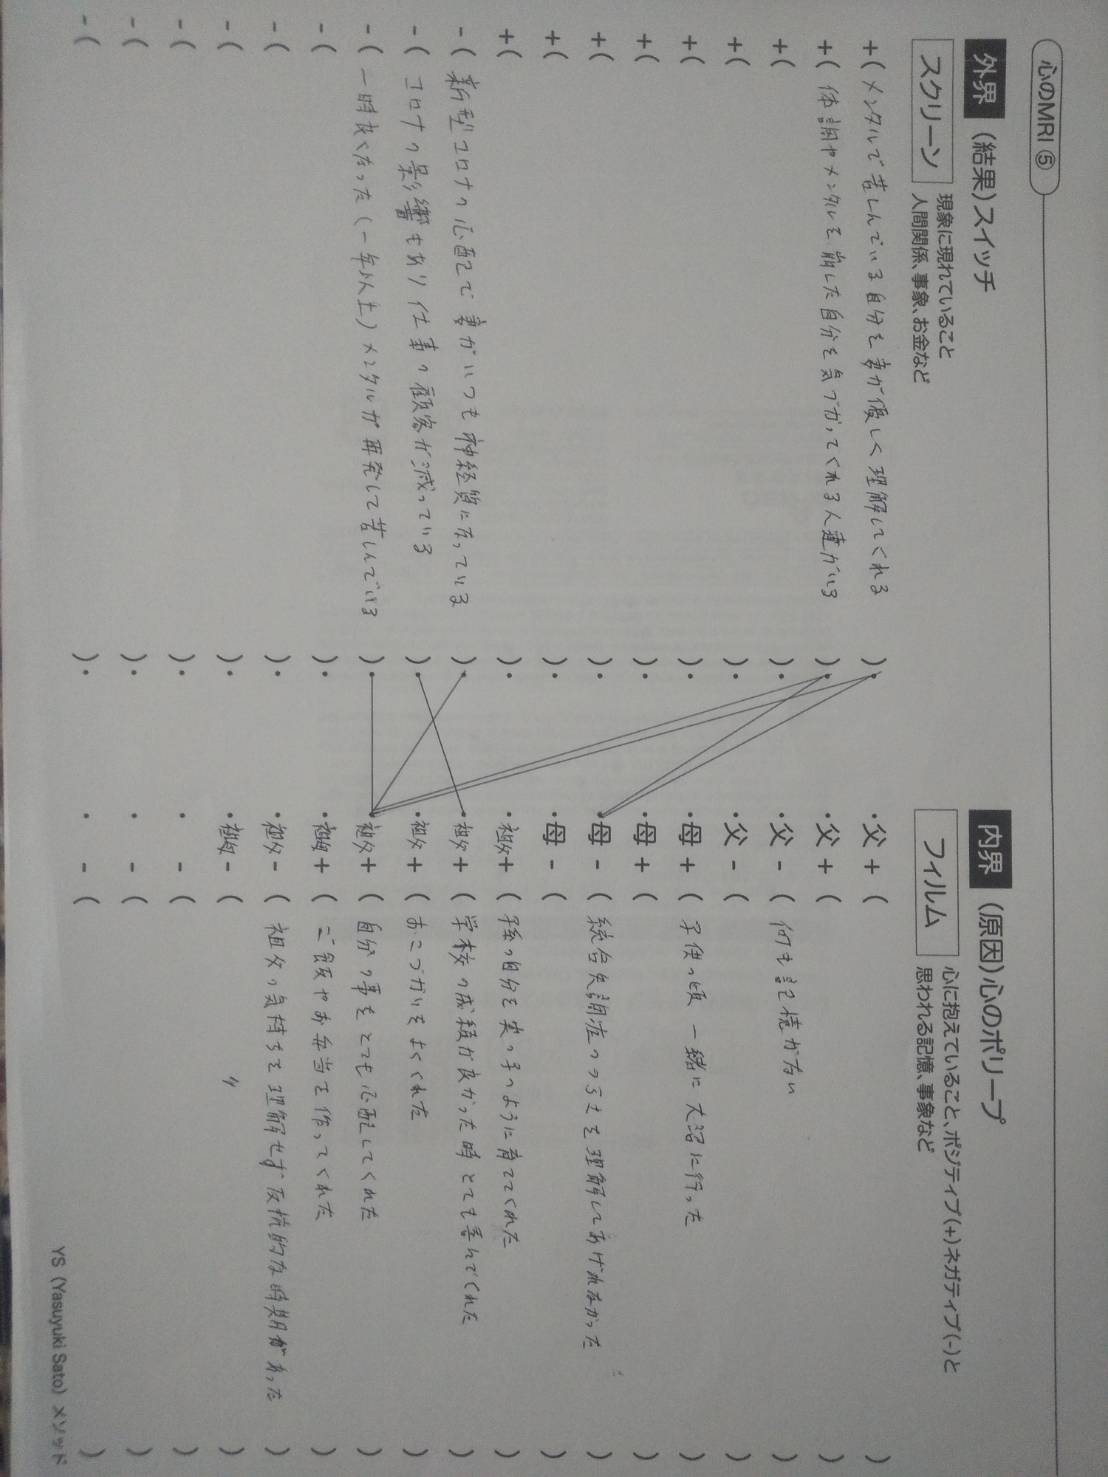 心のMRI ⑤
外界 (結果)スイッチ
スクリーン 現象に現れていること
人間関係、事象、お金など
+( メンタルで苦しんでいる自分を妻が優しく理解してくれる )・
+( 体調やメンタルを崩した自分を気づかってくれる人達がいる )・
+( )・
+( )・
+( )・
+( )・
+( )・
+( )・
+( )・
-( 新型コロナの心配で妻がいつも神経質になっている )・
-( コロナの影響もあり仕事の顧客が減っている )・
-( 一時良くなった(一年以上)メンタルが再発して苦しんでいる )・
-( )・
-( )・
-( )・
-( )・
-( )・
-( )・
内界 (原因)心のポリープ
フィルム 心に抱えていること、ポジティブ(+)ネガティブ(-)と
思われる記憶、事象など
・父 + ( )
・父 + ( )
・父 - ( 何も記憶がない )
・父 - ( )
・母 + ( 子供の頃 一緒に大沼に行った )
・母 + ( )
・母 - ( 統合失調症のつらさを理解してあげれなかった )
・母 - ( )
・祖父 + ( 孫の自分を実の子のように育ててくれた )
・祖父 + ( 学校の成績が良かった時とても喜んでくれた )
・祖父 + ( おこづかいをよくくれた )
・祖父 + ( 自分の事をとても心配してくれた )
・祖母 + ( ご飯やお弁当を作ってくれた )
・祖父 - ( 祖父の気持ちを理解せず反抗的な時期があった )
・祖母 - ( 〃 )
・ - ( )
・ - ( )
・ - ( )
YS (Yasuyuki Sato) メソッド